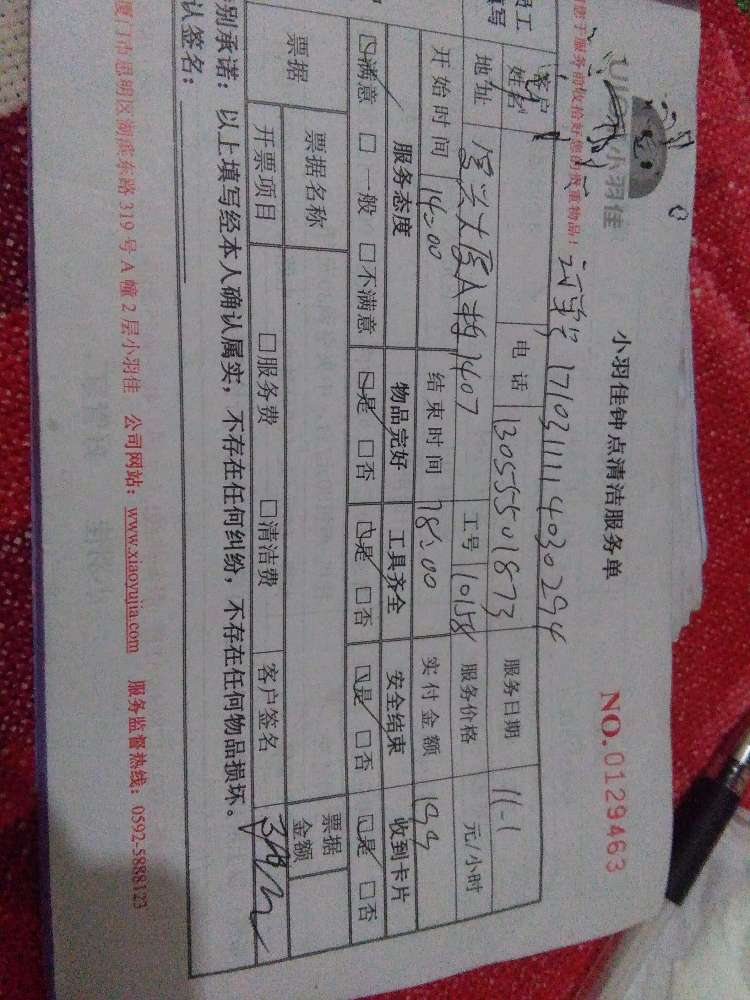 小羽佳
小羽佳钟点清洁服务单
NO.0129463
您于服务前收拾好您的贵重物品！
1710311114030294
客户姓名 电话 13055501873 服务日期 11-1
地址 A栋1407 工号 10158 服务价格 元/小时
开始时间 14:00 结束时间 18:00 实付金额 199
服务态度 物品完好 工具齐全 安全结束 收到卡片
☑满意 □一般 □不满意 ☑是 □否 ☑是 □否 ☑是 □否 ☑是 □否
票据 票据名称 票据金额
开票项目 □服务费 □清洁费 客户签名
别承诺：以上填写经本人确认属实，不存在任何纠纷，不存在任何物品损坏。
认签名：
厦门市思明区湖滨东路319号A幢2层小羽佳 公司网站：www.xiaoyujia.com 服务监督热线：0592-5888123